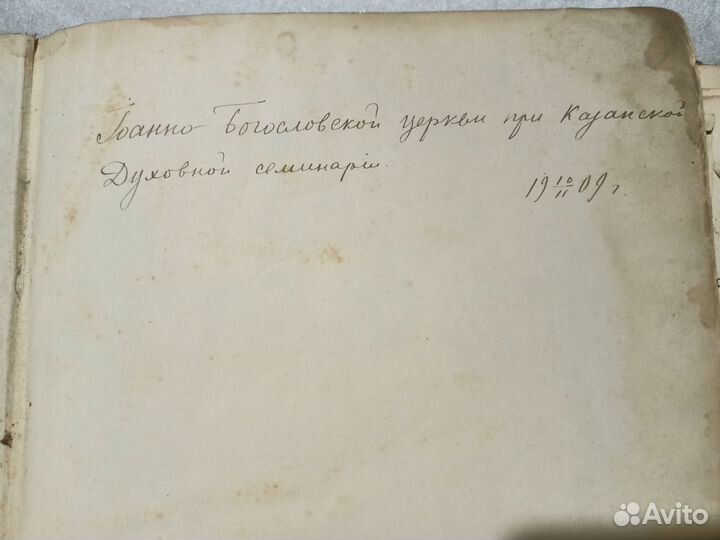 Іоанно-Богословской церкви при Казанской
Духовной семинаріи.
19 10/11 09 г.
Avito